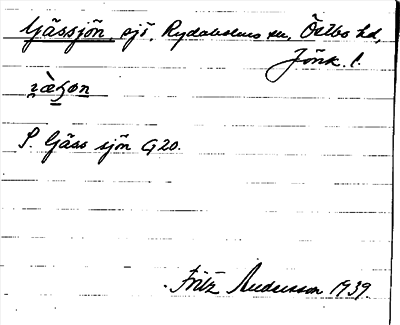 Gässjön, sjö, Rydaholms sn, Östbo hd,
Jönk. l.
S. Gäss sjön G20.
Fritz Andersson 1939.